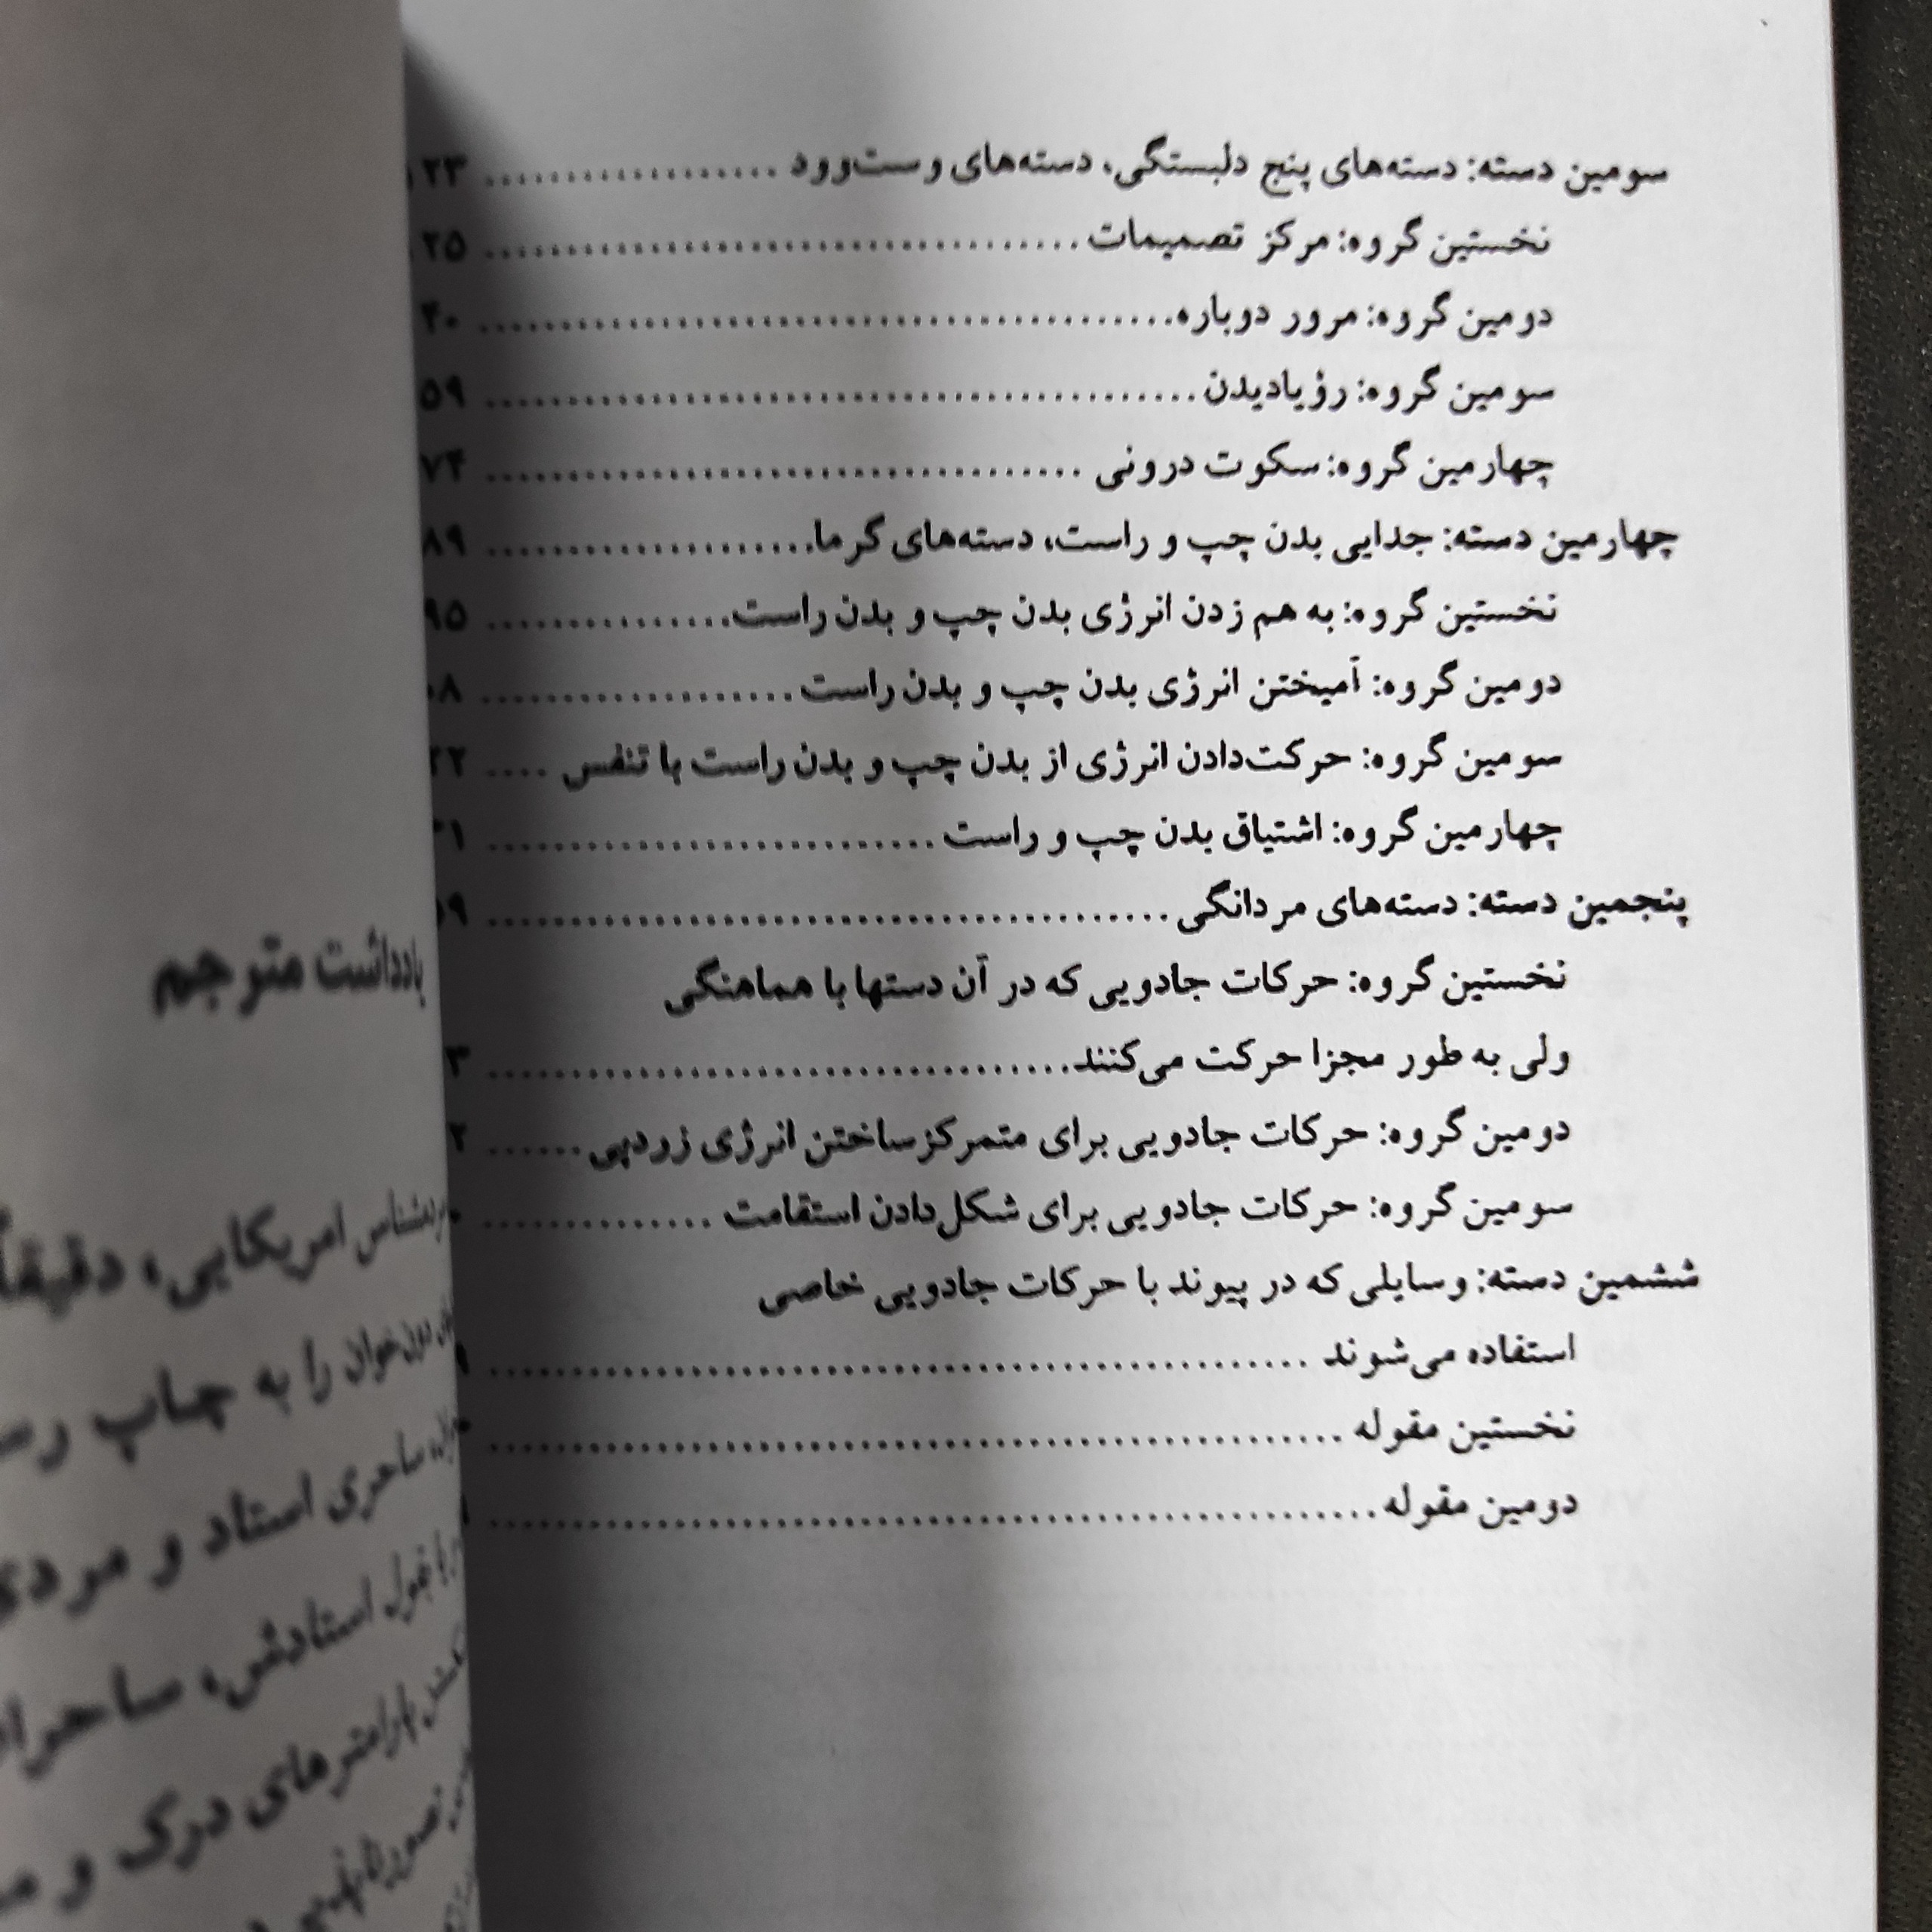 سومین دسته: دسته‌های پنج دلبستگی، دسته‌های وست‌وود .................. ۲۳
نخستین گروه: مرکز تصمیمات .................................... ۲۵
دومین گروه: مرور دوباره .......................................... ۴۰
سومین گروه: رؤیادیدن ........................................... ۵۹
چهارمین گروه: سکوت درونی .................................... ۷۴
چهارمین دسته: جدایی بدن چپ و راست، دسته‌های گرما .................... ۸۹
نخستین گروه: به هم زدن انرژی بدن چپ و بدن راست ............... ۹۵
دومین گروه: آمیختن انرژی بدن چپ و بدن راست ................... ۰۸
سومین گروه: حرکت‌دادن انرژی از بدن چپ و بدن راست با تنفس .... ۲۲
چهارمین گروه: اشتیاق بدن چپ و راست ...........................
پنجمین دسته: دسته‌های مردانگی .........................................
نخستین گروه: حرکات جادویی که در آن دستها با هماهنگی
ولی به طور مجزا حرکت می‌کنند ................................... ۳
دومین گروه: حرکات جادویی برای متمرکزساختن انرژی زردپی ...... ۲
سومین گروه: حرکات جادویی برای شکل‌دادن استقامت ..............
ششمین دسته: وسایلی که در پیوند با حرکات جادویی خاصی
استفاده می‌شوند .................................................
نخستین مقوله ...................................................
دومین مقوله .....................................................
یادداشت مترجم
امریکایی، دقیقاً
را به چاپ
ساحری استاد و مردی
استادش،
پارامترهای درک و